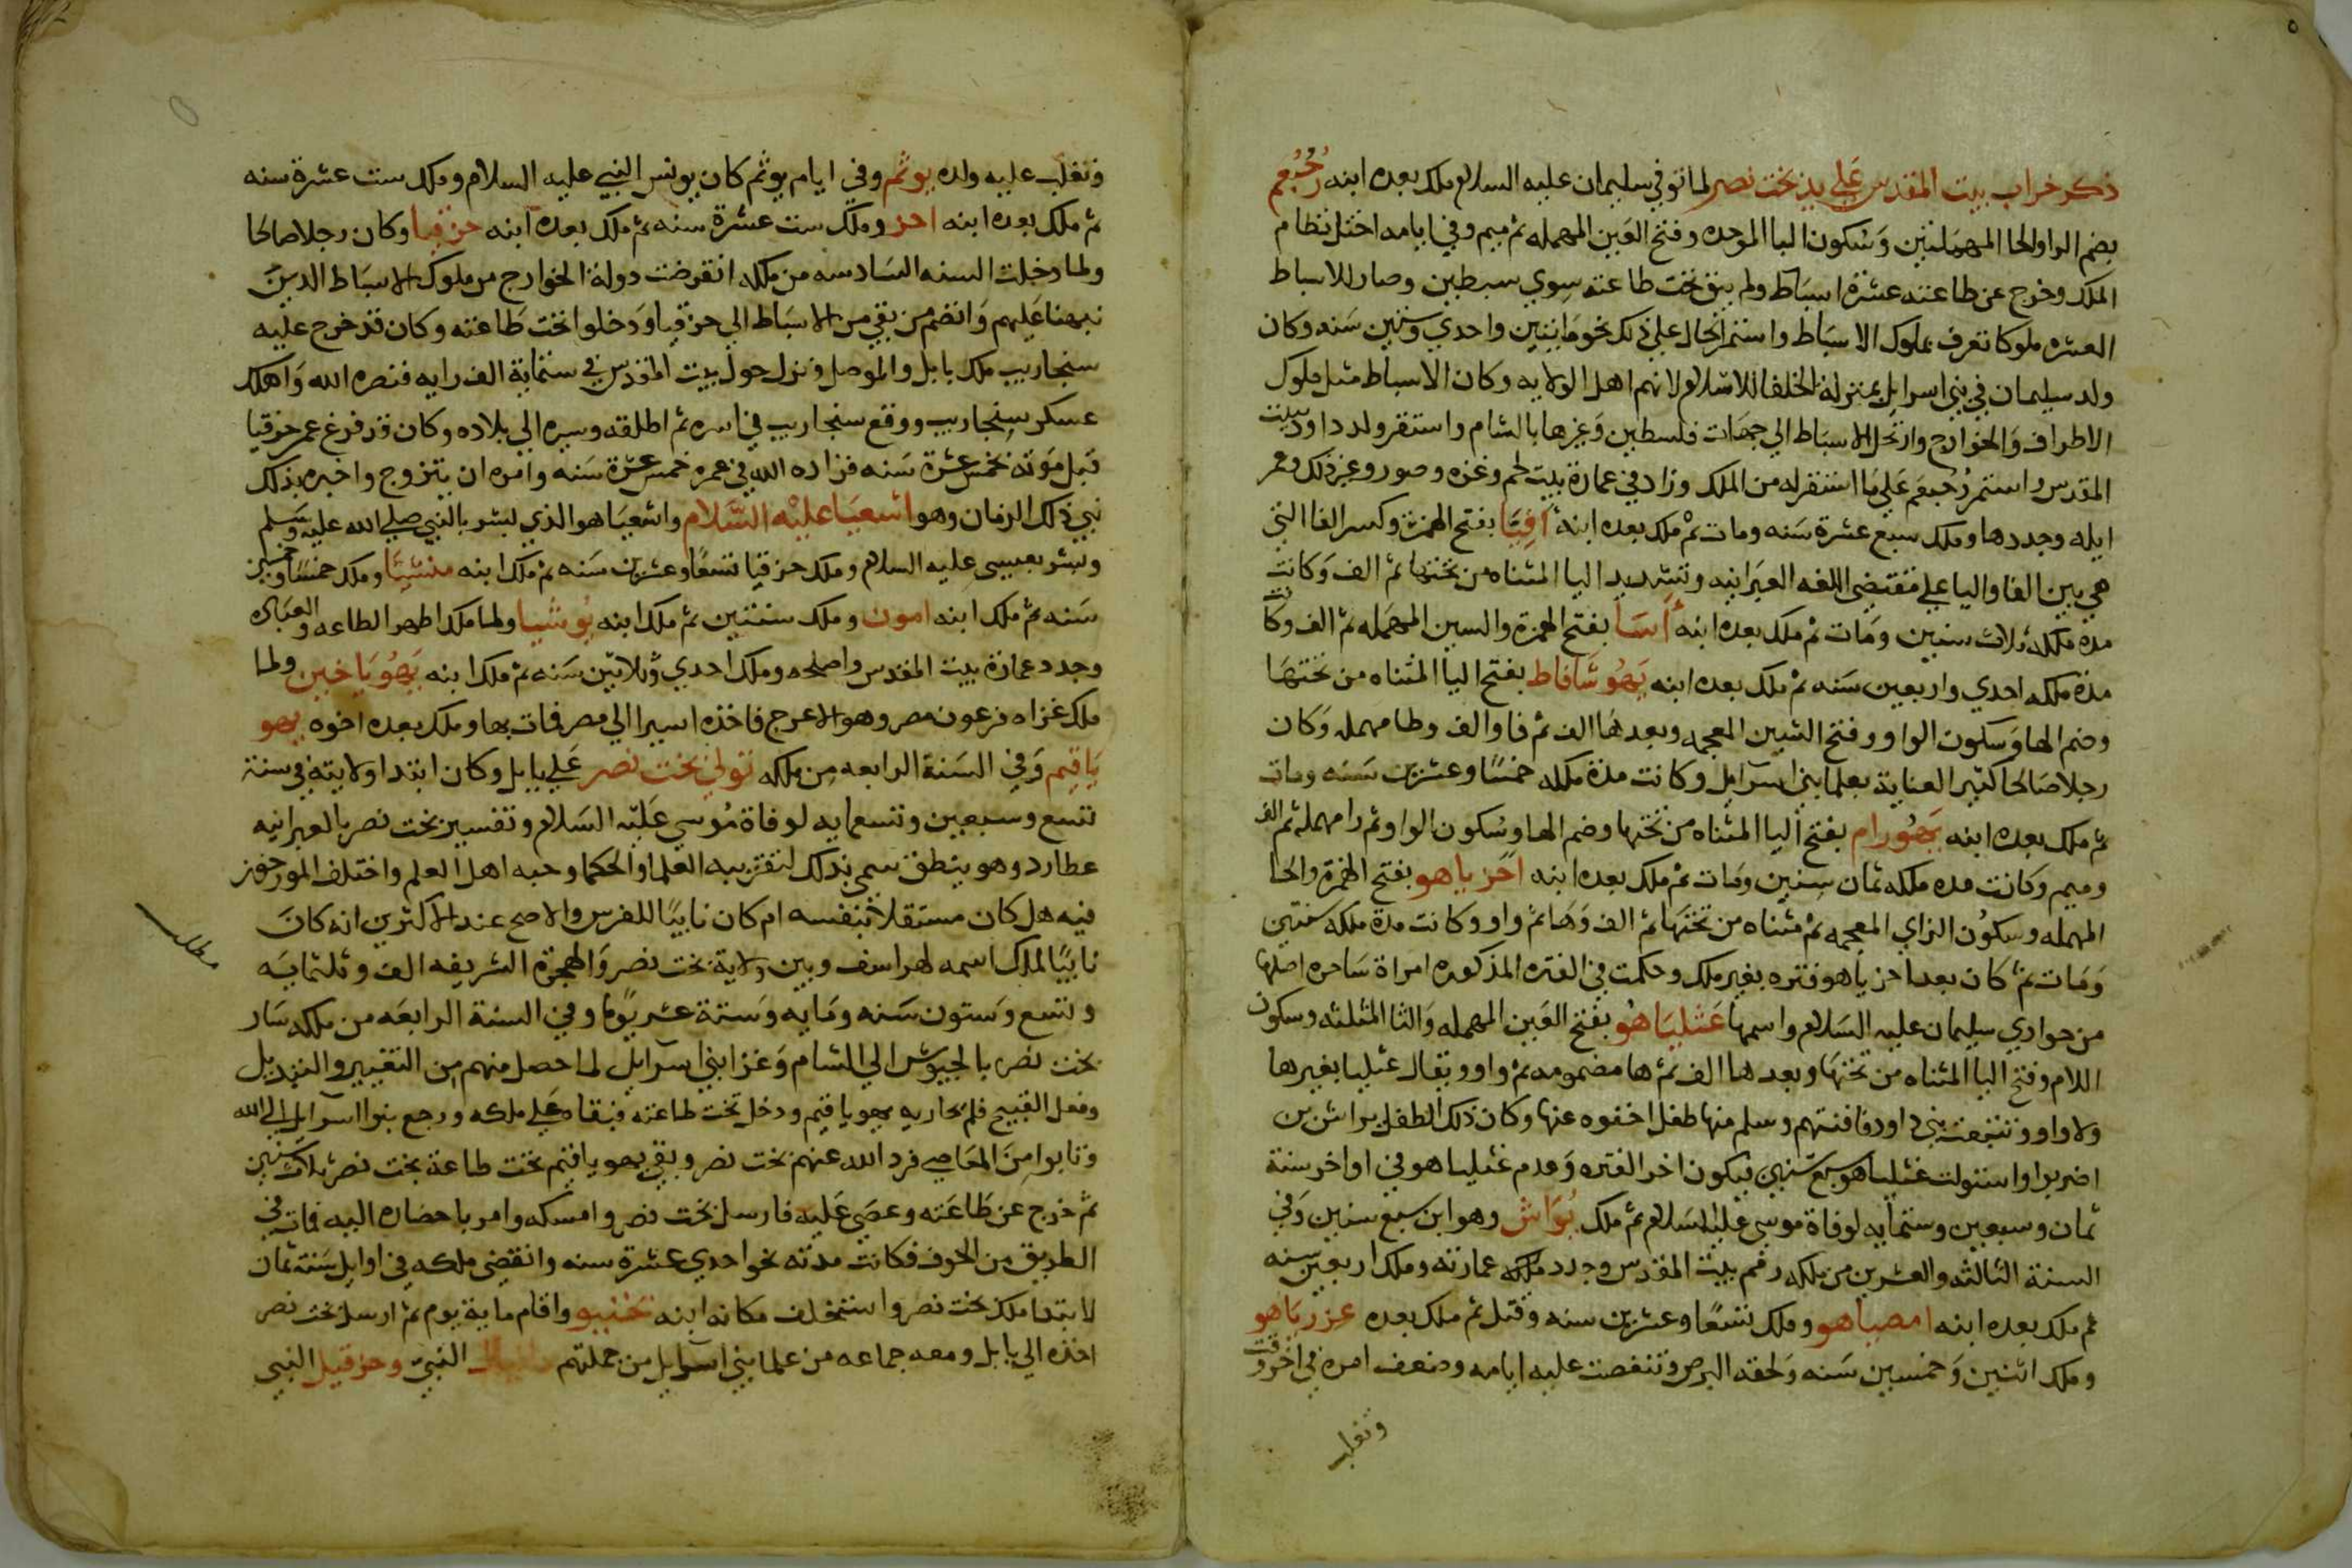 ٥
ذكر خراب بيت المقدس على يد بخت نصر لما توفي سليمان عليه السلام ملك بعده ابنه رُحُبْعُم
بضم الرا والحا المهملتين وسكون البا الموحده وفتح العين المهمله ثم ميم وفي ايامه اختل نظام
الملك وخرج عن طاعته عشرة اسباط ولم يبق تحت طاعته سوي سبطين وصار للاسباط
العشره ملوكا تعرف بملوك الاسباط واستمر الحال على ذلك نحو مايتين واحدي وستين سنه وكان
ولد سليمان في بني اسرايل بمنزلة الخلفا للاسلام لانهم اهل الولايه وكان الاسباط مثل ملوك
الاطراف والخوارج وارتحل الاسباط الي جهات فلسطين وغيرها بالشام واستقر ولد داود ببيت
المقدس واستمر رُحبعم على ما استقر له من الملك وزاد في عمارة بيت لحم وغزه وصور وغير ذلك وعمر
ايله وجددها وملك سبع عشرة سنه ومات ثم ملك بعده ابنه أَفِيَّا بفتح الهمزة وكسر الفا التي
هي بين الفا واليا علي مقتضى اللغه العبرانيه وتشديد اليا المثناه من تحتها ثم الف وكانت
مدة ملكه ثلاث سنين ومات ثم ملك بعده ابنه أَسَا بفتح الهمزة والسين المهمله ثم الف وكانت
مدة ملكه احدي واربعين سنه ثم ملك بعده ابنه يَهُوشَافاط بفتح اليا المثناه من تحتها
وضم الها وسكون الواو وفتح الشين المعجمه وبعدها الف ثم فا والف وطا مهمله وكان
رجلا صالحا كثير العناية بعلما بني اسرايل وكانت مدة ملكه خمسًا وعشرين سنه ومات
ثم ملك بعده ابنه يَهُورام بفتح اليا المثناه من تحتها وضم الها وسكون الواو ثم را مهمله ثم الف
وميم وكانت مده ملكه ثمان سنين ومات ثم ملك بعده ابنه احزياهو بفتح الهمزة والحا
المهمله وسكون الزاي المعجمه ثم مثناه من تحتها ثم الف وها ثم واو وكانت مدة ملكه سنتين
ومات ثم كان بعد احزياهو فتره بغير ملك وحكمت في الفتره المذكوره امراة ساحره اصلها
من جواري سليمان عليه السلام واسمها عَثلياهُو بفتح العين المهمله والثا المثلثه وسكون
اللام وفتح اليا المثناه من تحتها وبعدها الف ثم ها مضمومه ثم واو ويقال عثليا بغير ها
ولا واو وتتبعت بني داود فافنتهم وسلم منها طفل اخفوه عنها وكان ذلك الطفل يواش بن
احزيو واستولت عثلياهو سبع سنين فيكون اخر الفتره وعدم عثلياهو في اواخر سنة
ثمان وسبعين وستمايه لوفاة موسى عليه السلام ثم ملك يُوَاش وهو ابن سبع سنين وفي
السنة الثالثه والعشرين من ملكه رمم بيت المقدس وجدد عمارته وملك اربعين سنه
ثم ملك بعده ابنه امصياهو وملك تسعًا وعشرين سنه وقتل ثم ملك بعده عزرياهو
وملك اثنين وخمسين سنه ولحقه البرص وتنغصت عليه ايامه وضعف امره في اخر وقت
وتغلب
وتغلب عليه ولده يوثم وفي ايام يوثم كان يونس النبي عليه السلام وملك ست عشرة سنه
ثم ملك بعده ابنه احز وملك ست عشرة سنه ثم ملك بعده ابنه حزقيا وكان رجلا صالحا
ولما دخلت السنه السادسه من ملكه انقرضت دولة الخوارج من ملوك الاسباط الدين
نبهنا عليهم وانضم من بقي من الاسباط الي حزقيا ودخلوا تحت طاعته وكان قد خرج عليه
سنجاريب ملك بابل والموصل ونزل حول بيت المقدس في ستماية الف رايه فنصره الله واهلك
عسكر سنجاريب ووقع سنجاريب في اسره ثم اطلقه وسيره الي بلاده وكان قد فرغ عمر حزقيا
قبل موته بخمس عشرة سنه فزاده الله في عمره خمس عشرة سنه وامره ان يتزوج واخبره بذلك
نبي ذلك الزمان وهو اشعيا عليه السلام واشعيا هو الذي بشر بالنبي صلي الله عليه وسلم
وبشر بعيسى عليه السلام وملك حزقيا تسعًا وعشرين سنه ثم ملك ابنه منشيّا وملك خمسًا وخمسين
سنه ثم ملك ابنه امون وملك سنتين ثم ملك ابنه يُوشيا ولما ملك اظهر الطاعه والعباده
وجدد عمارة بيت المقدس واصلحه وملك احدي وثلاثين سنه ثم ملك ابنه يَهُوياخين ولما
ملك غزاه فرعون مصر وهو الاعرج فاخذه اسيرا الي مصر فمات بها وملك بعده اخوه يهو
ياقيم وفي السنة الرابعه من ملكه تولي بخت نصر علي بابل وكان ابتدا ولايته في سنة
تسع وسبعين وتسعمايه لوفاة موسي عليه السلام وتفسير بخت نصر بالعبرانيه
عطارد وهو ينطق سمى بذلك لتقريبه العلما والحكما وحبه اهل العلم واختلف المورخون
فيه هل كان مستقلا بنفسه ام كان نايبًا للفرس والاصح عند الاكثرين انه كان
نايبًا لملك اسمه لهراسف وبين ولاية بخت نصر والهجرة الشريفه الف وثلثمايه
وتسع وستون سنه ومايه وسته عشر يومًا وفي السنة الرابعه من ملكه سار
بخت نصر بالجيوش الي الشام وغزا بني اسرايل لما حصل منهم من التغيير والتبديل
وفعل القبيح فلم يحاربه يهوياقيم ودخل تحت طاعته فبقاه على ملكه ورجع بنوا اسرايل الي الله
وتابوا من المعاصي فرد الله عنهم بخت نصر وبقي يهوياقيم تحت طاعة بخت نصر ثلاث سنين
ثم خرج عن طاعته وعصي عليه فارسل بخت نصر وامسكه وامر باحضاره اليه فمات في
الطريق من الخوف فكانت مدته نحو احدي عشرة سنه وانقضى ملكه في اوايل سنة ثمان
لابتدا ملك بخت نصر واستخلف مكانه ابنه يخنيو واقام ماية يوم ثم ارسل بخت نصر
اخذه الي بابل ومعه جماعه من علما بني اسرايل من جملتهم دانيال النبي وحزقيل النبي
مطلب